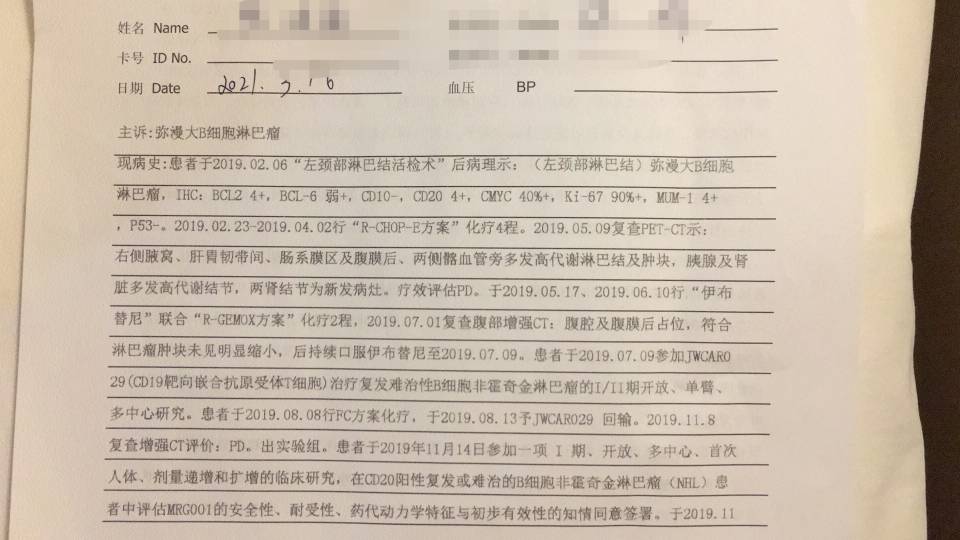 姓名 Name
卡号 ID No.
日期 Date 2021. 7. 16 血压 BP
主诉:弥漫大B细胞淋巴瘤
现病史:患者于2019.02.06“左颈部淋巴结活检术”后病理示:(左颈部淋巴结)弥漫大B细胞
淋巴瘤, IHC: BCL2 4+, BCL-6 弱+, CD10-, CD20 4+, CMYC 40%+, Ki-67 90%+, MUM-1 4+
, P53-。2019.02.23-2019.04.02行“R-CHOP-E方案”化疗4程。2019.05.09复查PET-CT示:
右侧腋窝、肝胃韧带间、肠系膜区及腹膜后、两侧髂血管旁多发高代谢淋巴结及肿块, 胰腺及肾
脏多发高代谢结节, 两肾结节为新发病灶。疗效评估PD。于2019.05.17、2019.06.10行“伊布
替尼”联合“R-GEMOX方案”化疗2程, 2019.07.01复查腹部增强CT: 腹腔及腹膜后占位, 符合
淋巴瘤肿块未见明显缩小, 后持续口服伊布替尼至2019.07.09。患者于2019.07.09参加JWCAR0
29(CD19靶向嵌合抗原受体T细胞)治疗复发难治性B细胞非霍奇金淋巴瘤的I/II期开放、单臂、
多中心研究。患者于2019.08.08行FC方案化疗, 于2019.08.13予JWCAR029 回输。2019.11.8
复查增强CT评价: PD。出实验组。患者于2019年11月14日参加一项 I 期、开放、多中心、首次
人体、剂量递增和扩增的临床研究, 在CD20阳性复发或难治的B细胞非霍奇金淋巴瘤(NHL)患
者中评估MRG001的安全性、耐受性、药代动力学特征与初步有效性的知情同意签署。于2019.11